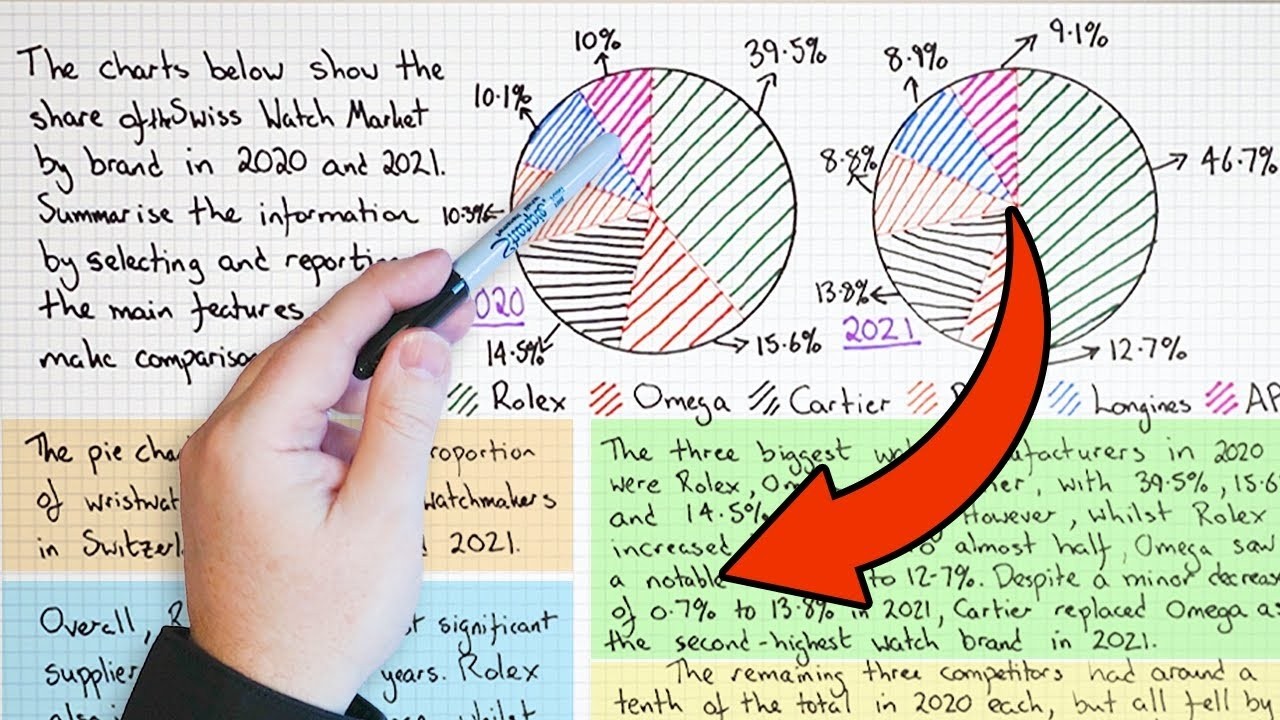 The charts below show the
share of the Swiss Watch Market
by brand in 2020 and 2021.
Summarise the information
by selecting and
the main features
make
10%
39.5%
10.1%
10.3%
14.5%
15.6%
2020
Sharpie
9.1%
8.9%
46.7%
8.8%
13.8%
12.7%
2021
Rolex Omega Cartier Longines AP
The pie
of
watchmakers
in 2021.
Overall,
significant
years. Rolex
The three biggest in 2020
were Rolex, with 39.5%,
and 14.5% However, whilst Rolex
increased almost half, Omega saw
a notable to 12.7%. Despite a minor
of 0.7% to 13.8% in 2021, Cartier replaced Omega as
the second-highest watch brand in 2021.
The remaining three competitors had around a
tenth of the total in 2020 each, but all fell by